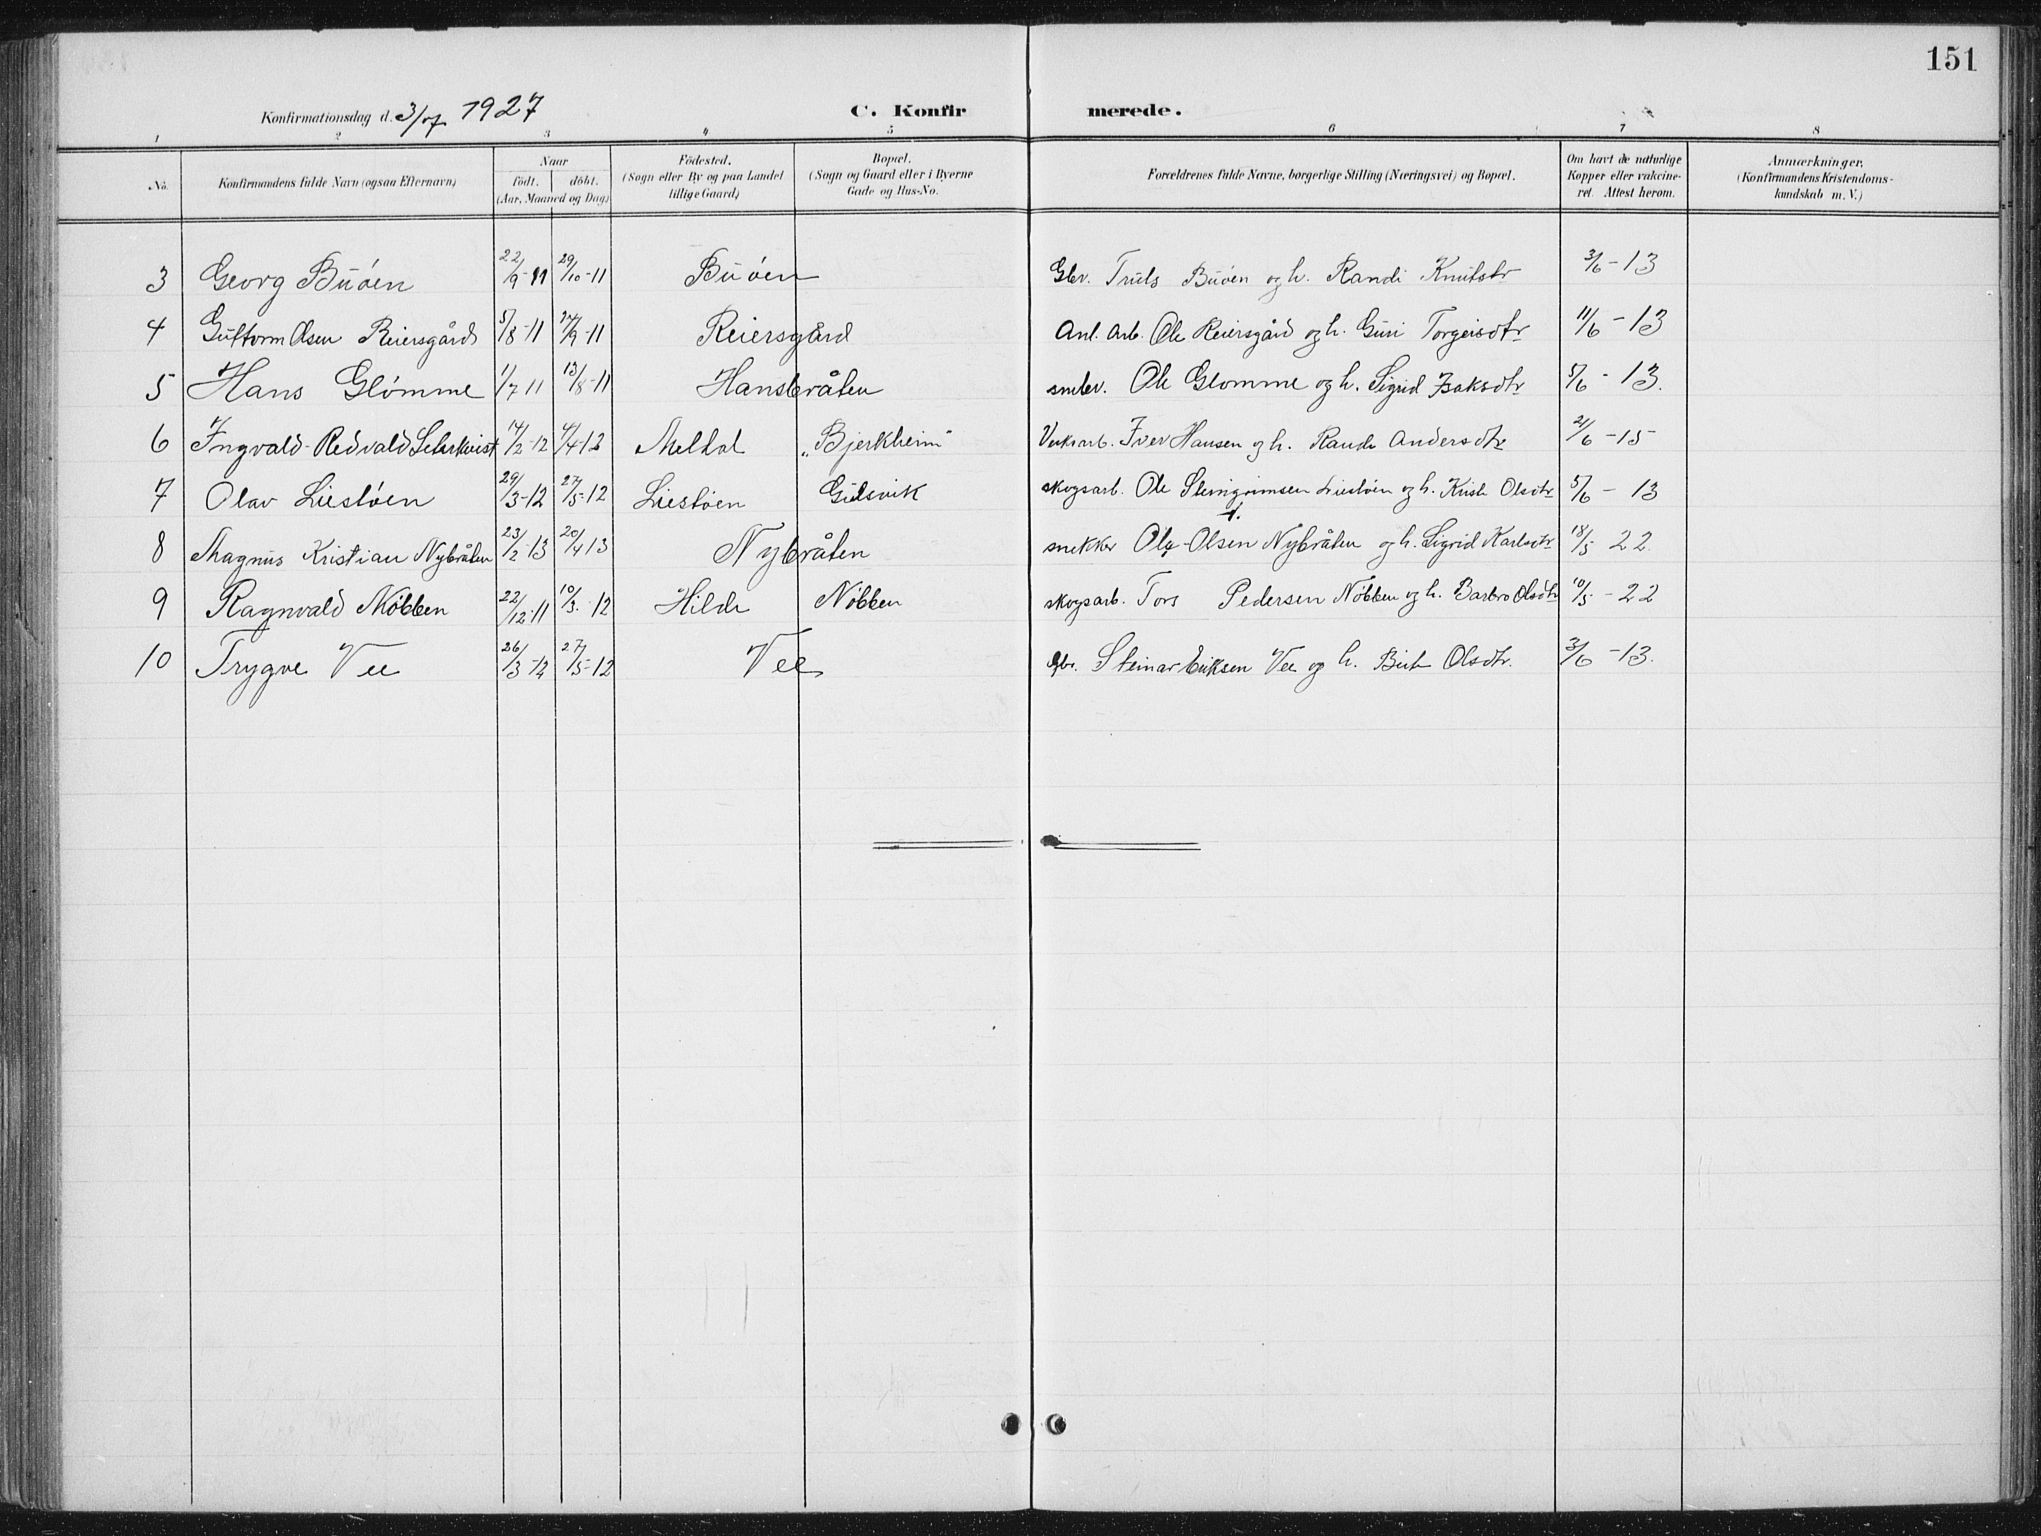 151
Konfirmationsdag d. 3/7 1927 C. Konfirmerede.
1 2 3 4 5 6 7 8
No. Konfirmandens fulde Navn (ogsaa Efternavn) Naar født. døbt. (Aar, Maaned og Dag) Fødested. (Sogn eller By og paa Landet tillige Gaard) Bopæl. (Sogn og Gaard eller i Byerne Gade og Hus-No. Forældrenes fulde Navne, borgerlige Stilling (Næringsvei) og Bopæl. Om havt de naturlige Kopper eller vakcineret. Attest herom. Anmærkninger. (Konfirmandens Kristendomskundskab m. V.)
3 Georg Buøen 22/9-11 29/10-11 Buøen Gbr. Truls Buøen og h. Randi Knutsdtr 3/6-13
4 Guttorm Olsen Reiersgård 5/8-11 24/9-11 Reiersgård Anl. Arb. Ole Reiersgård og h. Guri Torgeisdtr 11/6-13
5 Hans Glømme 1/7 11 13/8-11 Hansbråten smbr. Ole Glømme og h. Sigrid Isaksdtr 5/6-13.
6 Ingvald Redvald 14/2-12 4/4-12 Meldal "Bjerkheim" Verksarb. Iver Hansen og h. Randi Andersdtr 21/6-15
7 Olav Liestøen 29/3-12 27/5-12 Liestøen Gulsvik skogsarb. Ole Steingrimsen Liestøen og h. Kristi Olsdtr 5/6-13
8 Magnus Kristian Nybråten 23/2-13 20/4 13 Nybråten snekker Ola Olsen Nybråten og h. Sigrid Karlsdtr 18/5 22.
9 Ragnvald Nøbben 22/12-11 10/3-12 Hilde Nøbben skogsarb. Tors Pedersen Nøbben og h. Barbro Olsdtr 10/5-22
10 Trygve Vee 26/3-12 27/5-12 Vee gbr. Steinar Eriksen Vee og h. Birte Olsdtr. 3/6-13.